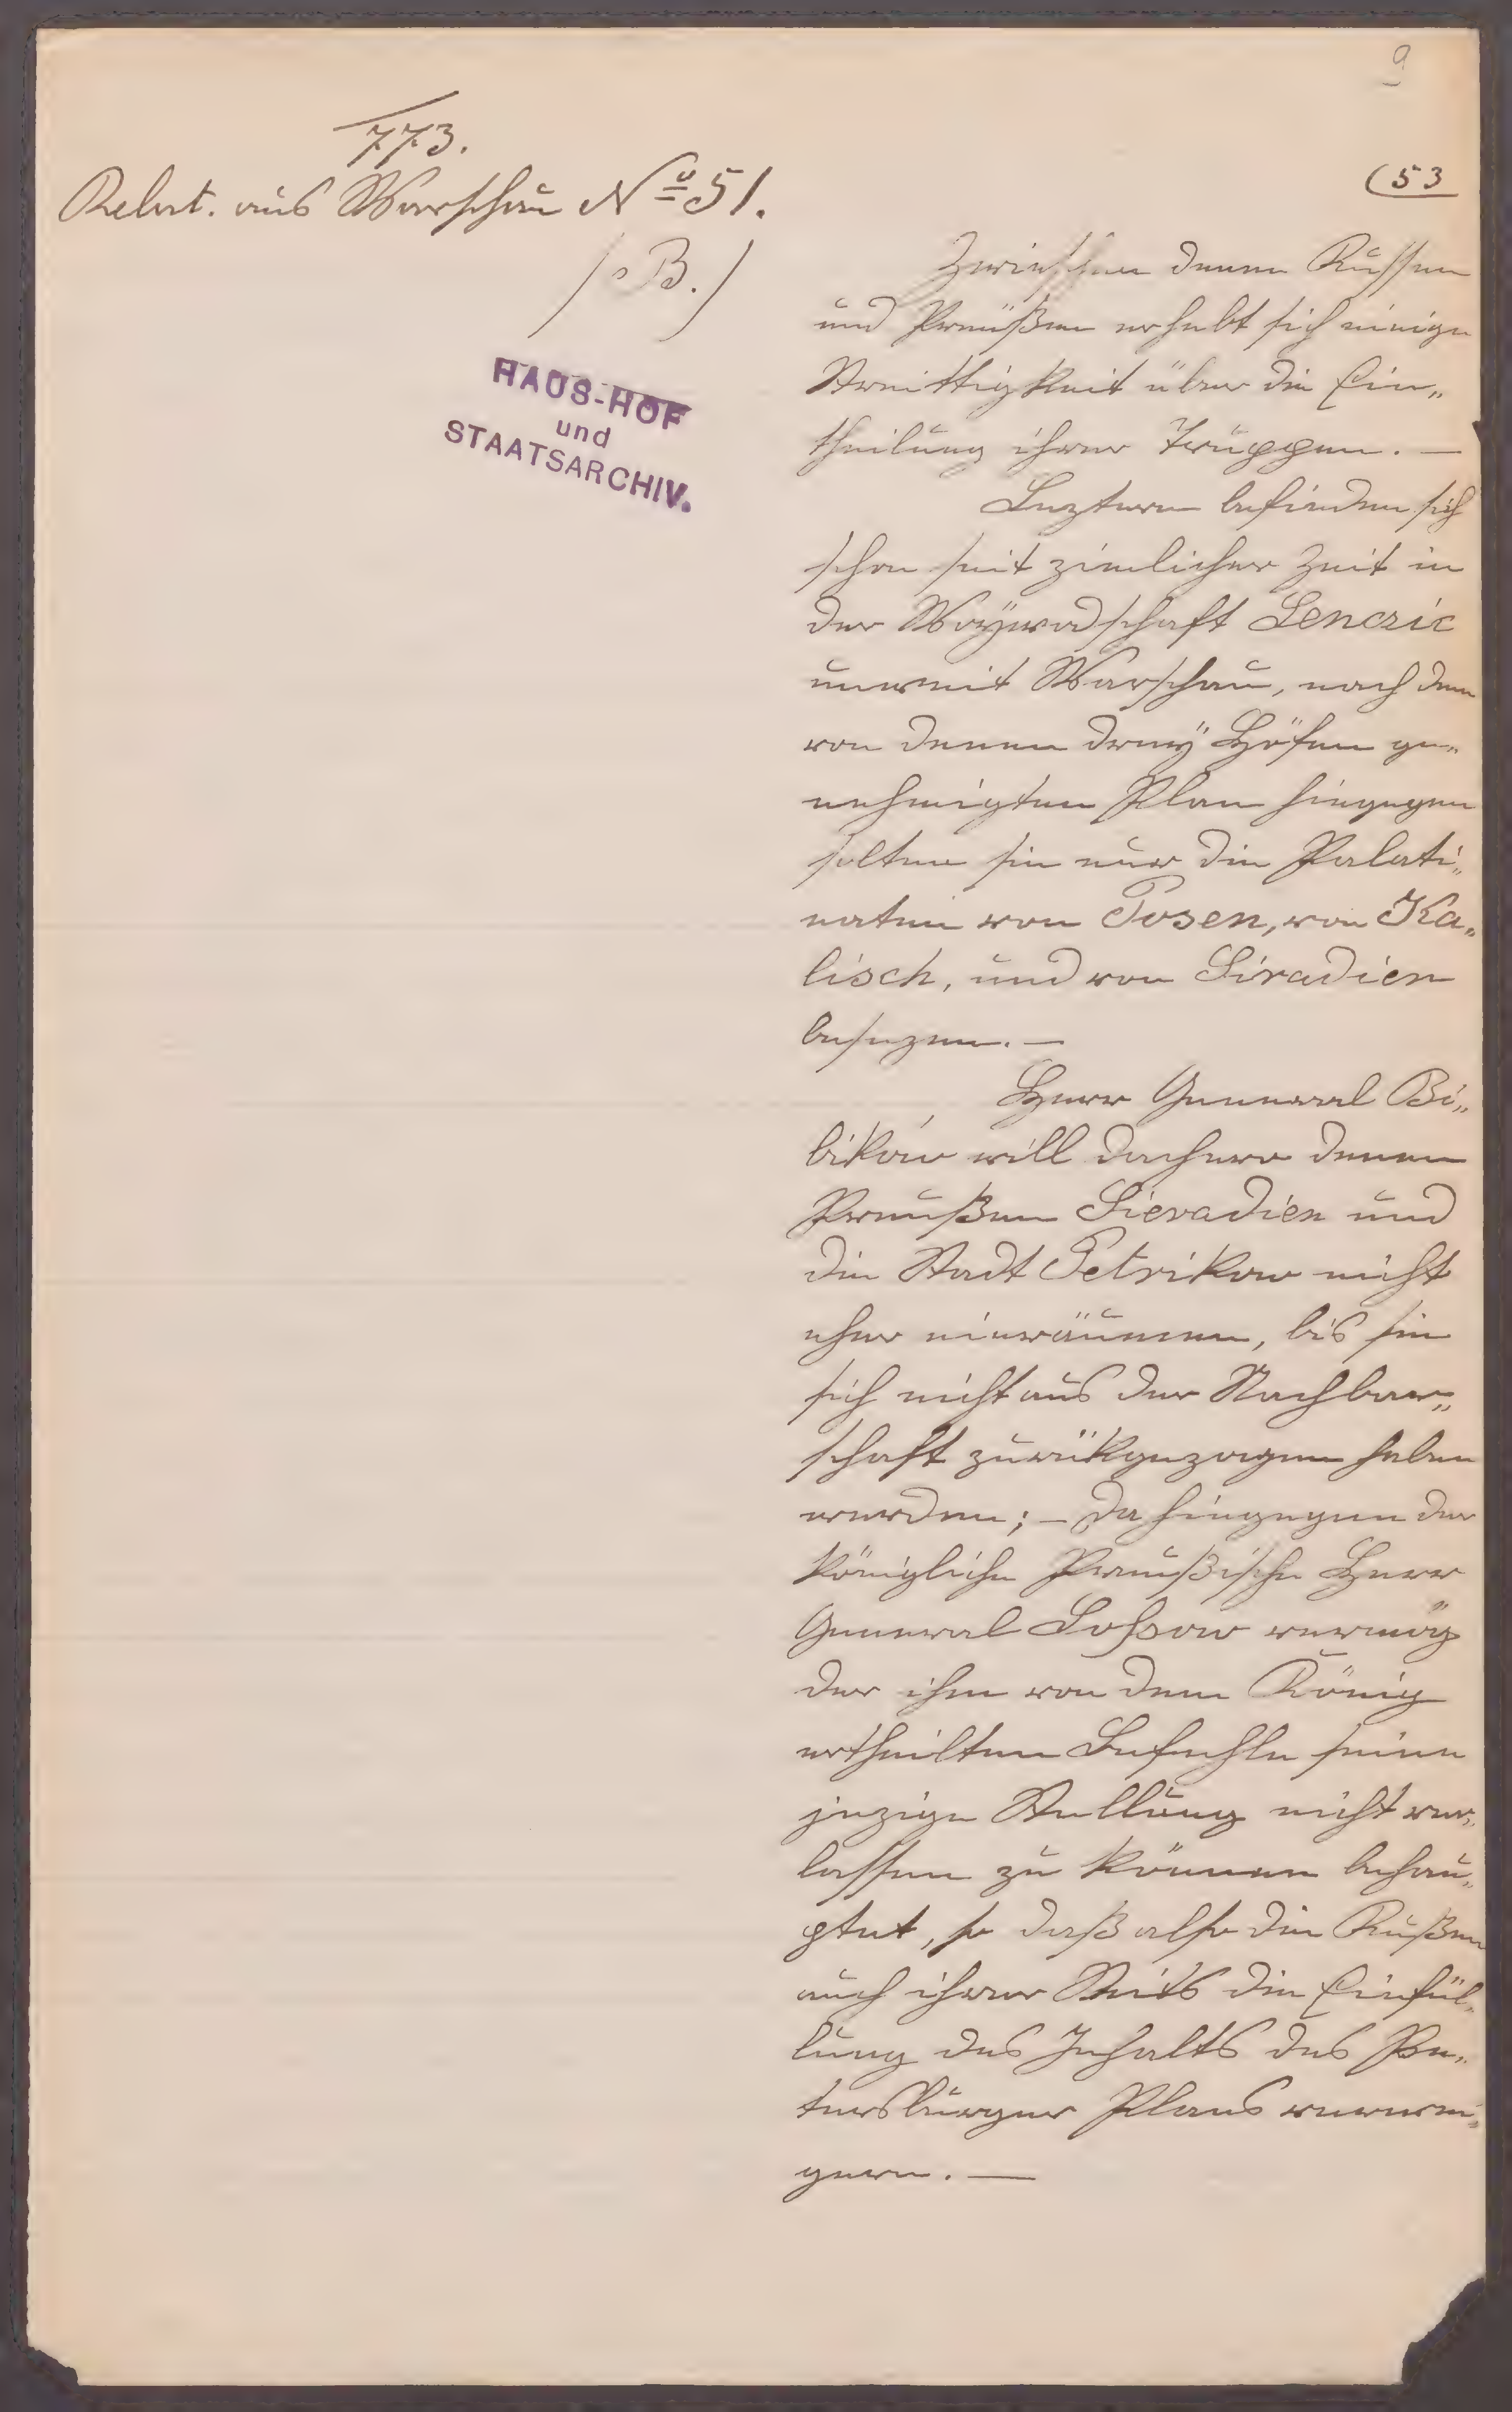 9
773.
Relat. aus Warschau No 51.
/: B. /
HAUS-HOF
und
STAATSARCHIV.
(53
Zwischen denen Russen
und Preüßen erhebt sich einige
Streittigkeit über die Ein„
theilung ihrer Truppen. —
Leztere befinden sich
schon seit zimlicher Zeit in
der Woÿwodschaft Lenczic
unweit Warschau, nach dem
von denen dreÿ Höfen ge„
nehmigten Plan hingegen
solten sie nur die Palati„
naten von Posen, von Ka„
lisch, und von Siradien
besezen. —
Herr General Bi„
bikow will dachero denen
Preußen Sieradien und
die Stadt Petrikow nicht
eher einräumen, bis sie
sich nicht aus der Nachbar„
schaft zurükgezogen haben
werden; – da hingegen der
königliche Preußische Herr
General Loßow vermög
der ihm von dem König
ertheilten Befehle seine
jezige Stellung nicht ver„
lassen zu können behau„
ptet, so daß also die Rußen
auch ihrer Seits die Einfül„
lung des Inhalts des Pe„
tersburger Plans verwei„
gern. —